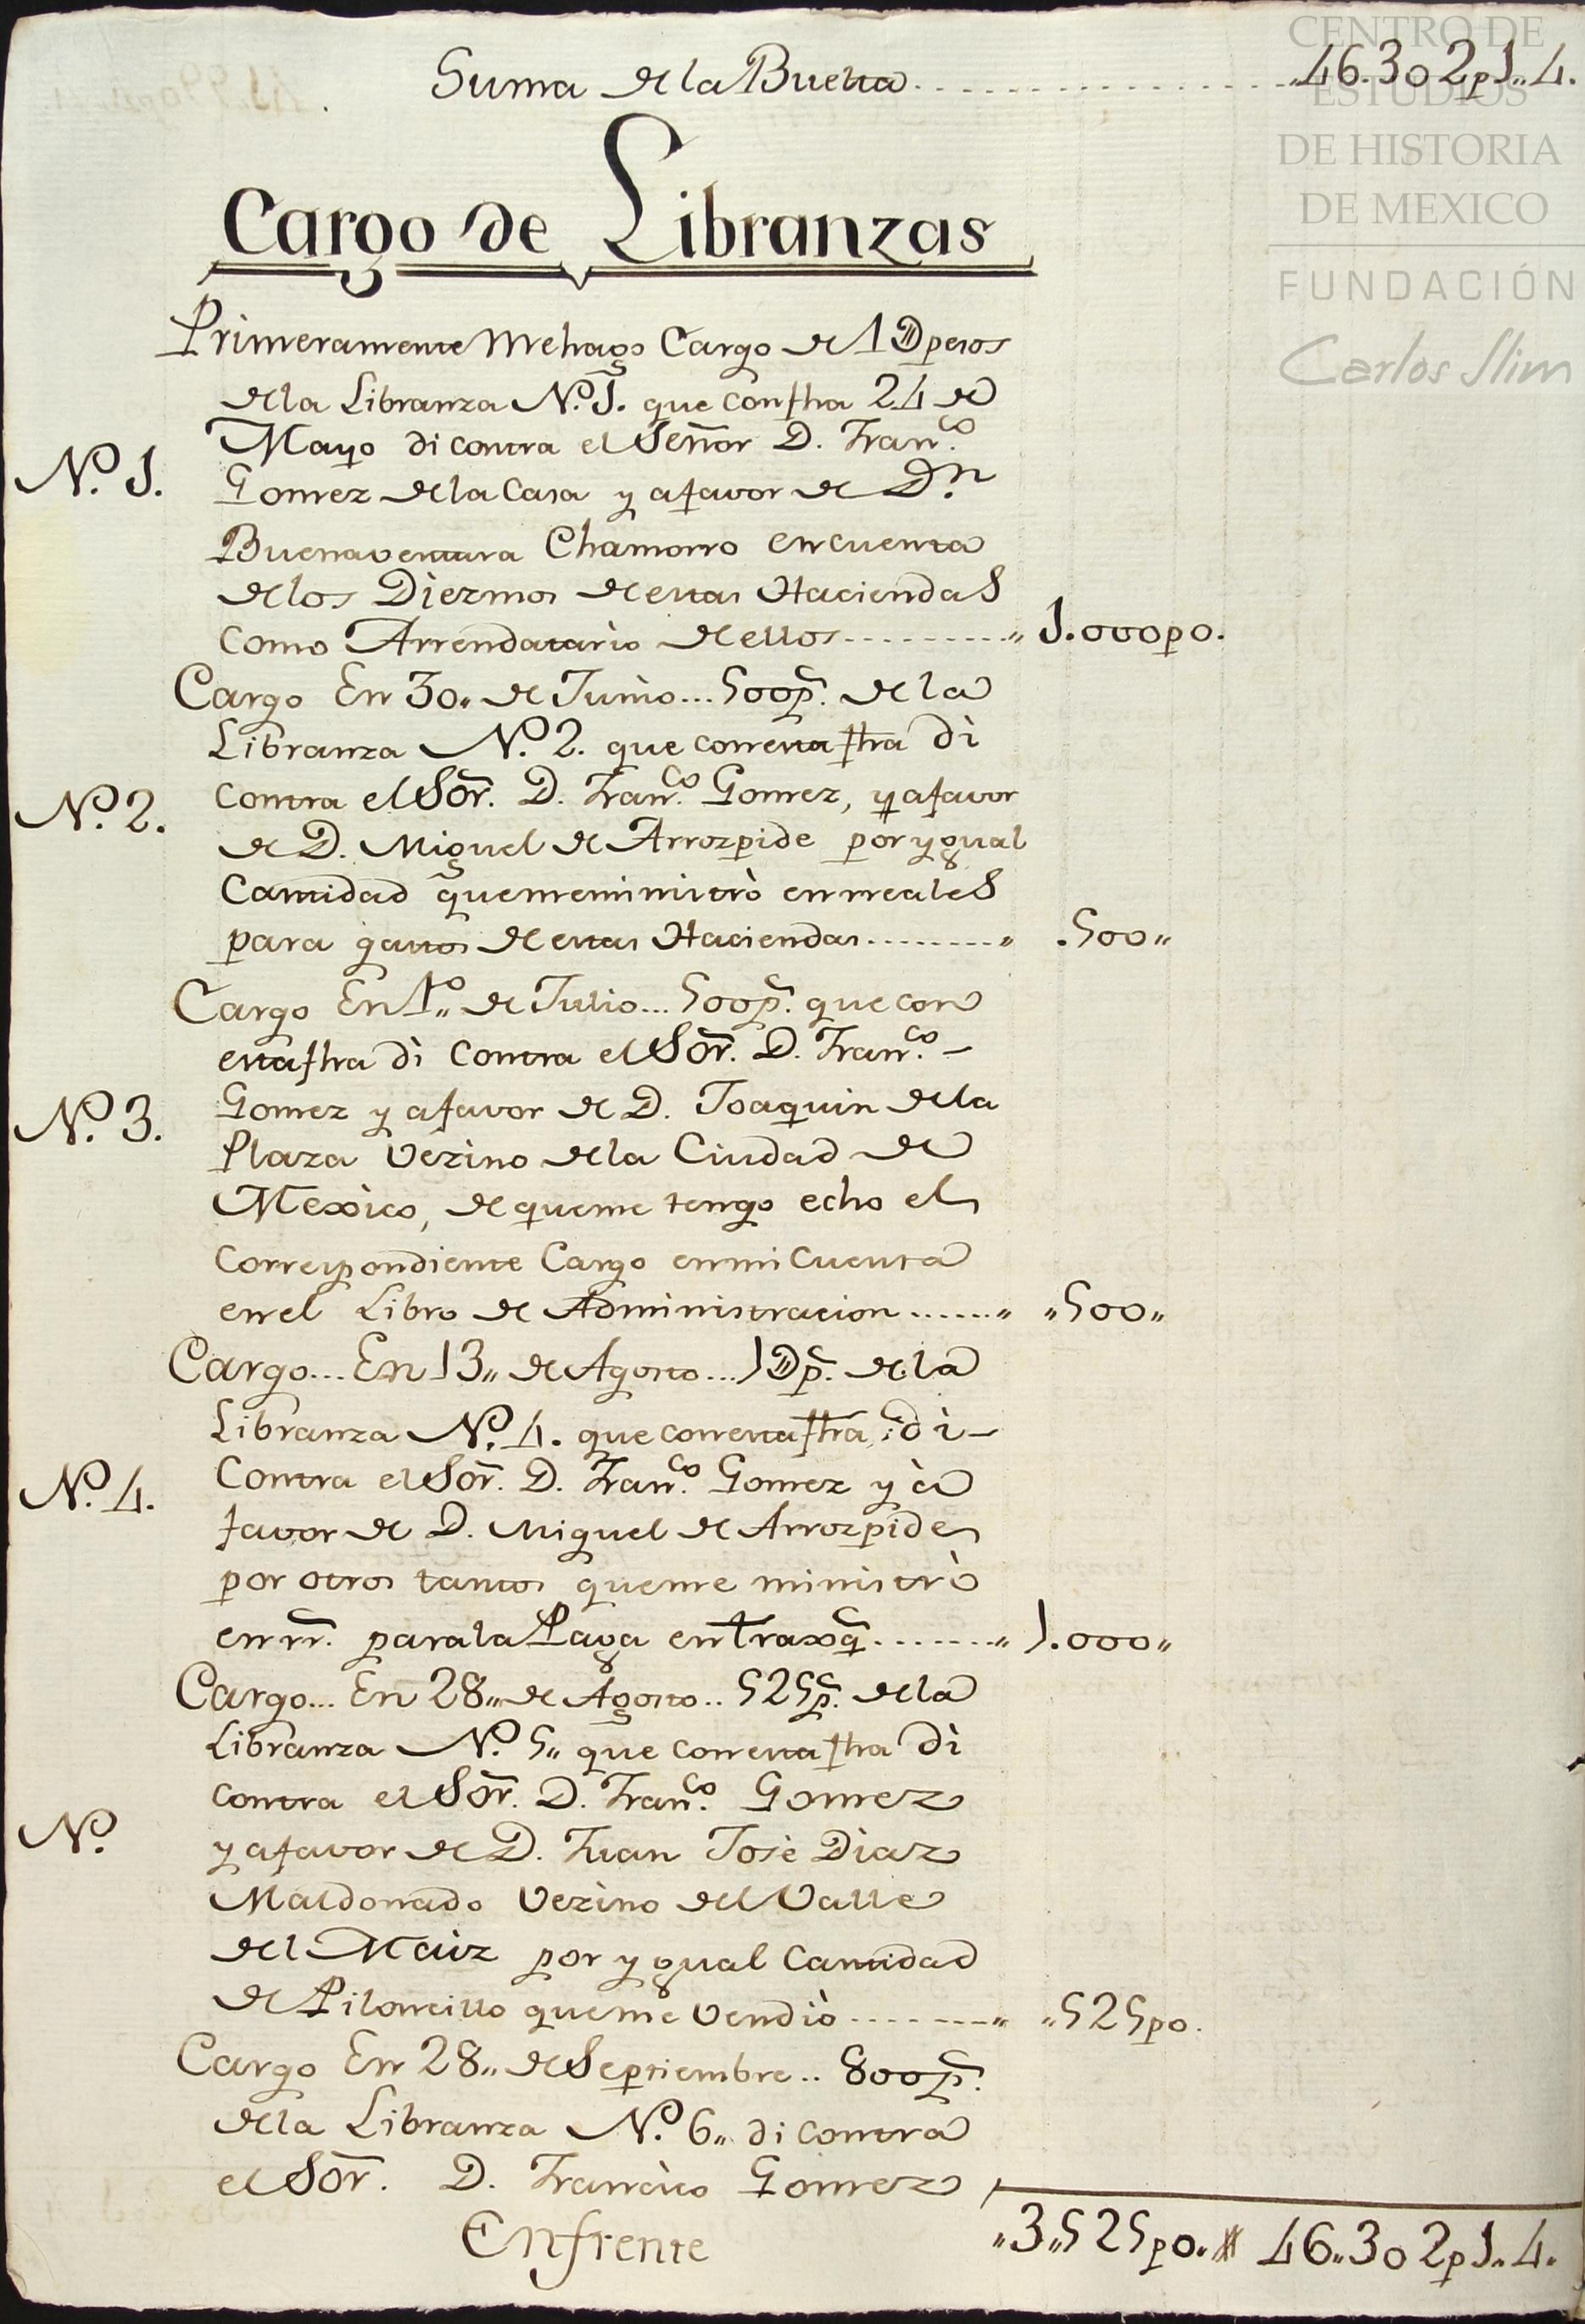 Suma de la Buelta .46.302p1..4.
CENTRO DE
ESTUDIOS
DE HISTORIA
DE MEXICO
FUNDACIÓN
Carlos Slim
Cargo de Libranzas
Primeramente me hago Cargo de 1D pesos
de la Libranza N.º 1. que con fha 24 de
Mayo di contra el Señor D. Fran.co
N.º 1. Gomez de la Casa y a favor de D.n
Buenaventura Chamorro en cuenta
de los Diezmos de estas Haciendas
como Arrendatario de ellos " 1.000p0.
Cargo En 30" de Junio... 500p.s de la
Libranza N.º 2. que con esta fha di
N.º 2. contra el Sor. D. Fran.co Gomez, y a favor
de D. Miguel de Arrozpide por ygual
Cantidad que me ministrò en reales
para gastos de estas Haciendas " .500"
Cargo En 1.º" de Julio... 500p.s que con
esta fha dì contra el Sor. D. Fran.co –
N.º 3. Gomez y a favor de D. Joaquin de la
Plaza Vezino de la Ciudad de
Mexìco, de que me tengo echo el
Correspondiente Cargo en mi Cuenta
en el Libro de Administracion " "500"
Cargo... En 13" de Agosto... 1Dp.s de la
Libranza N.º 4. que con esta fha dì –
N.º 4. Contra el Sor. D. Fran.co Gomez y à
favor de D. Miguel de Arrozpide
por otros tantos que me ministrò
en rr.s para la Paga en Traxq " 1.000"
Cargo... En 28" de Agosto.. 525p.s de la
Libranza N.º 5" que con esta fha Dì
contra el Sor. D. Fran.co Gomez
N.º y a favor de D. Juan Josè Diaz
Maldonado Vezino del Valle
del Maiz por ygual Cantidad
de Piloncillo que me Vendiò " "525p0.
Cargo En 28" de Septiembre.. 800p.s
de la Libranza N.º 6" di contra
el Sor. D. Francisco Gomez
Enfrente "3"525p0" 46"302p1"4.